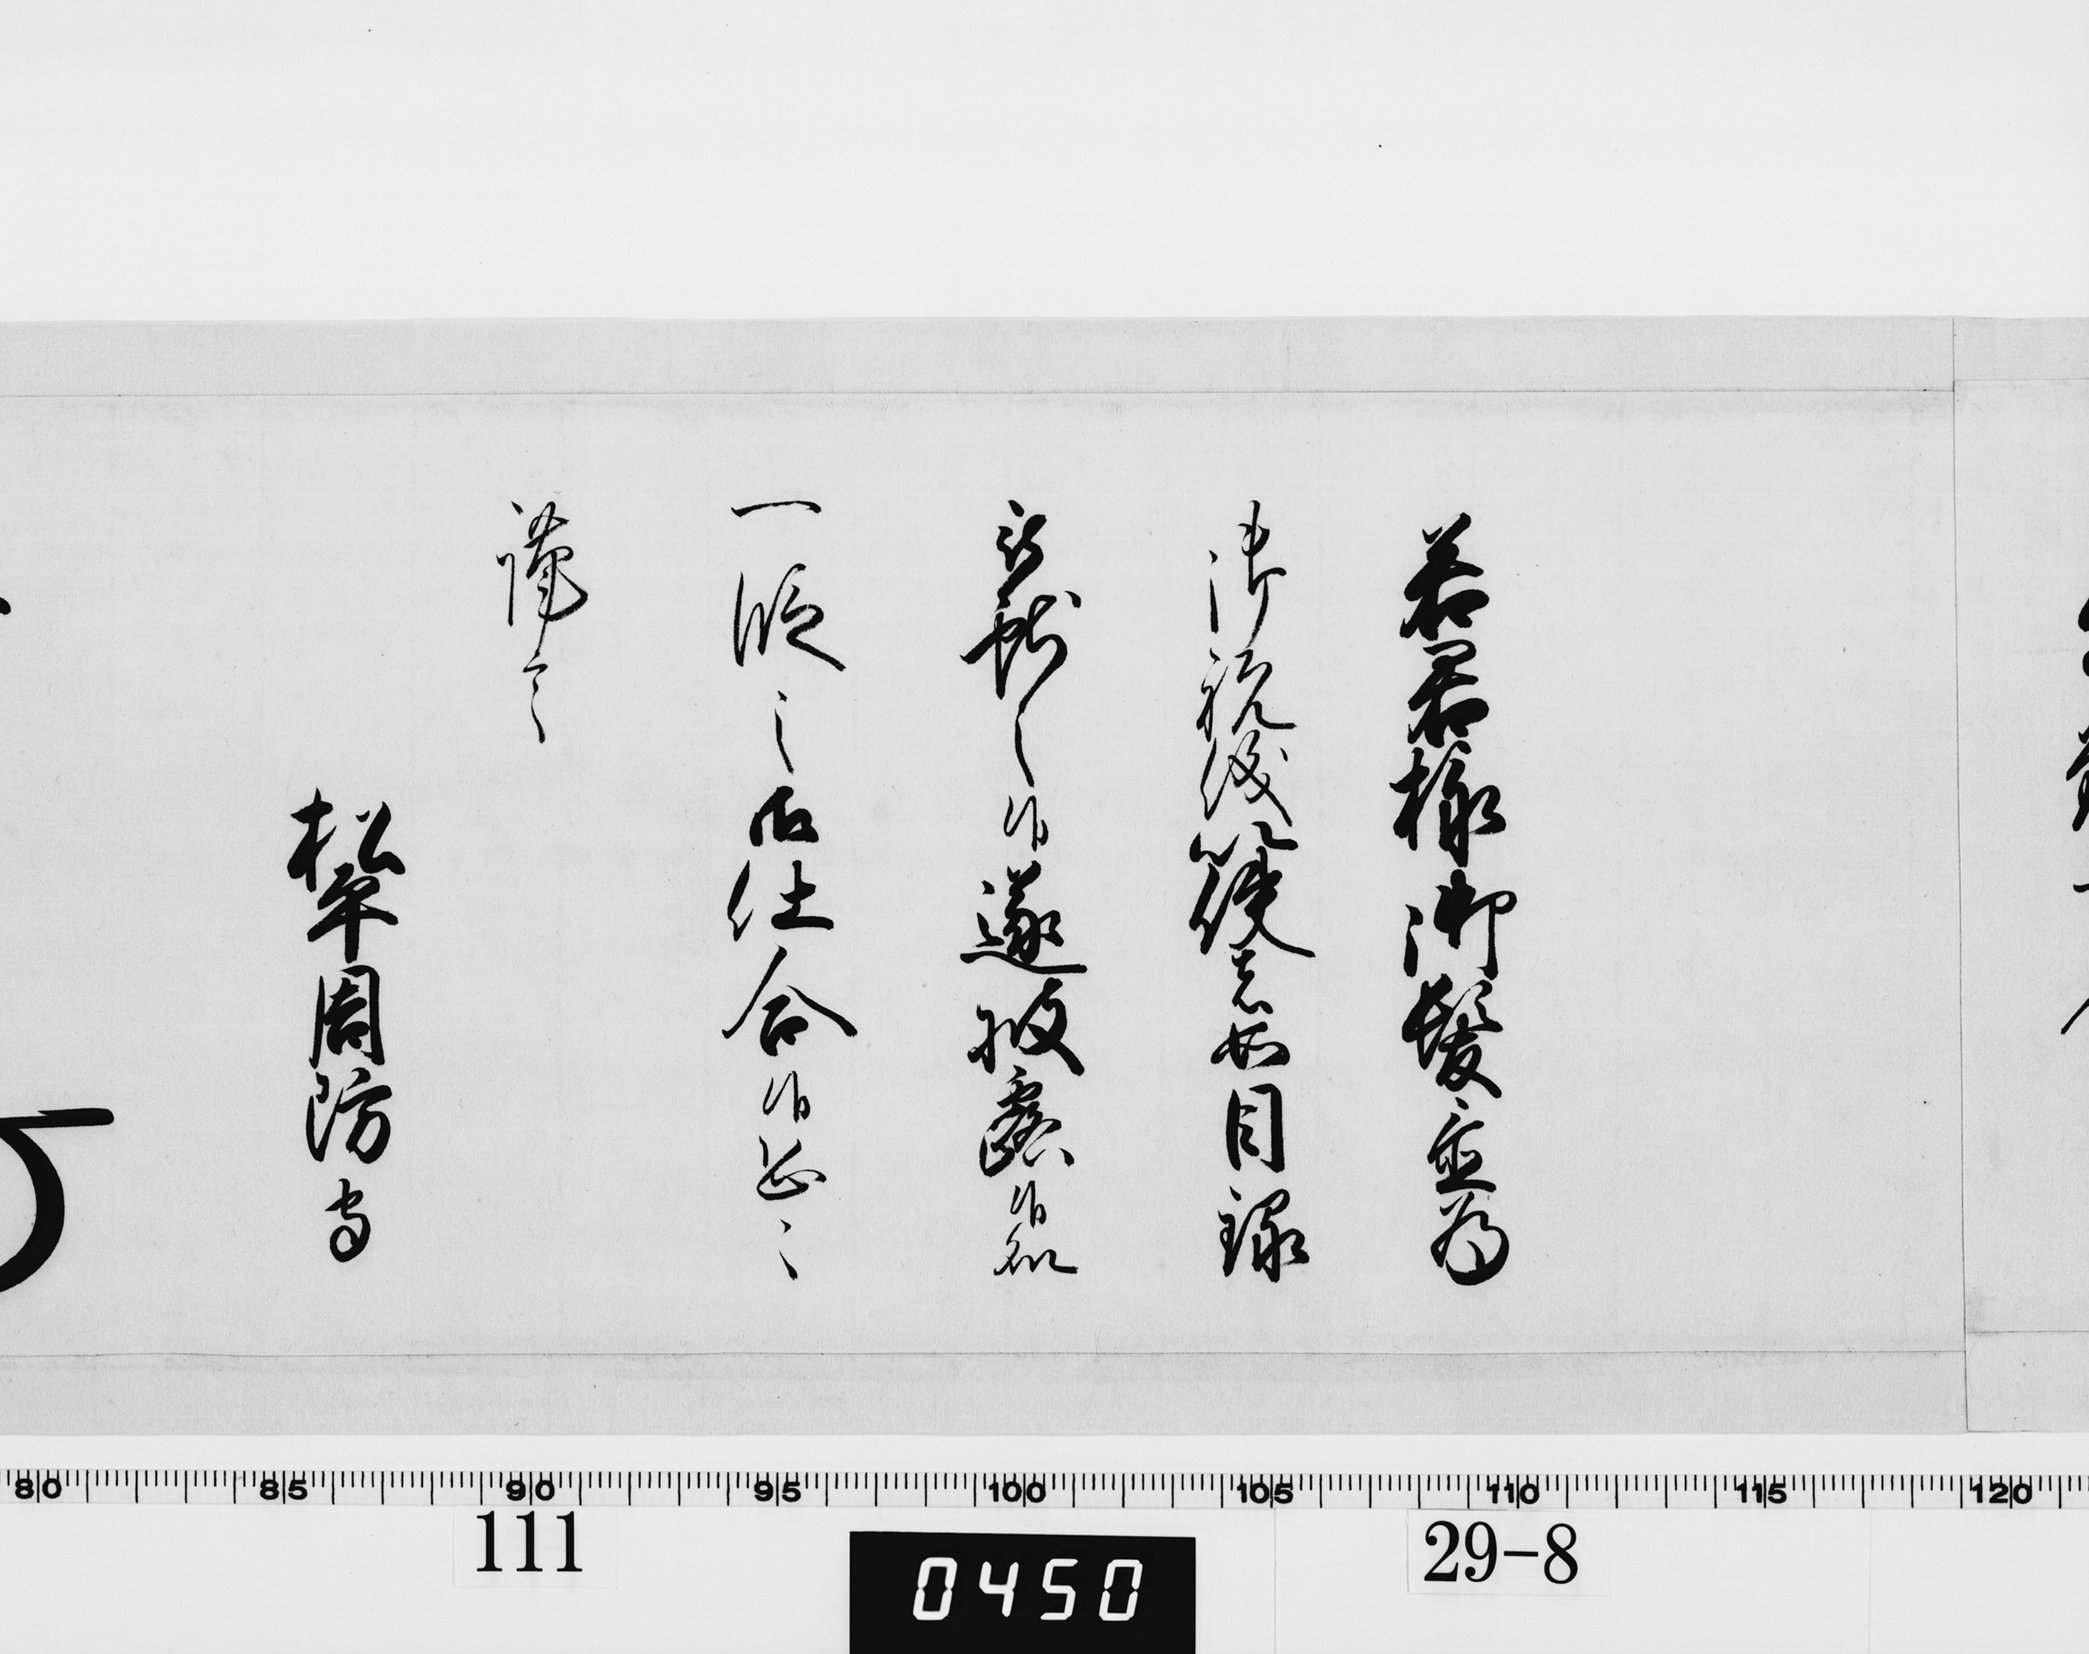 若君様御髪置為
御祝儀以使者如目録
献之候遂披露候処
一段之御仕合候恐々
謹言
松平周防守
80 85 90 95 100 105 110 115 120
111
0450
29-8